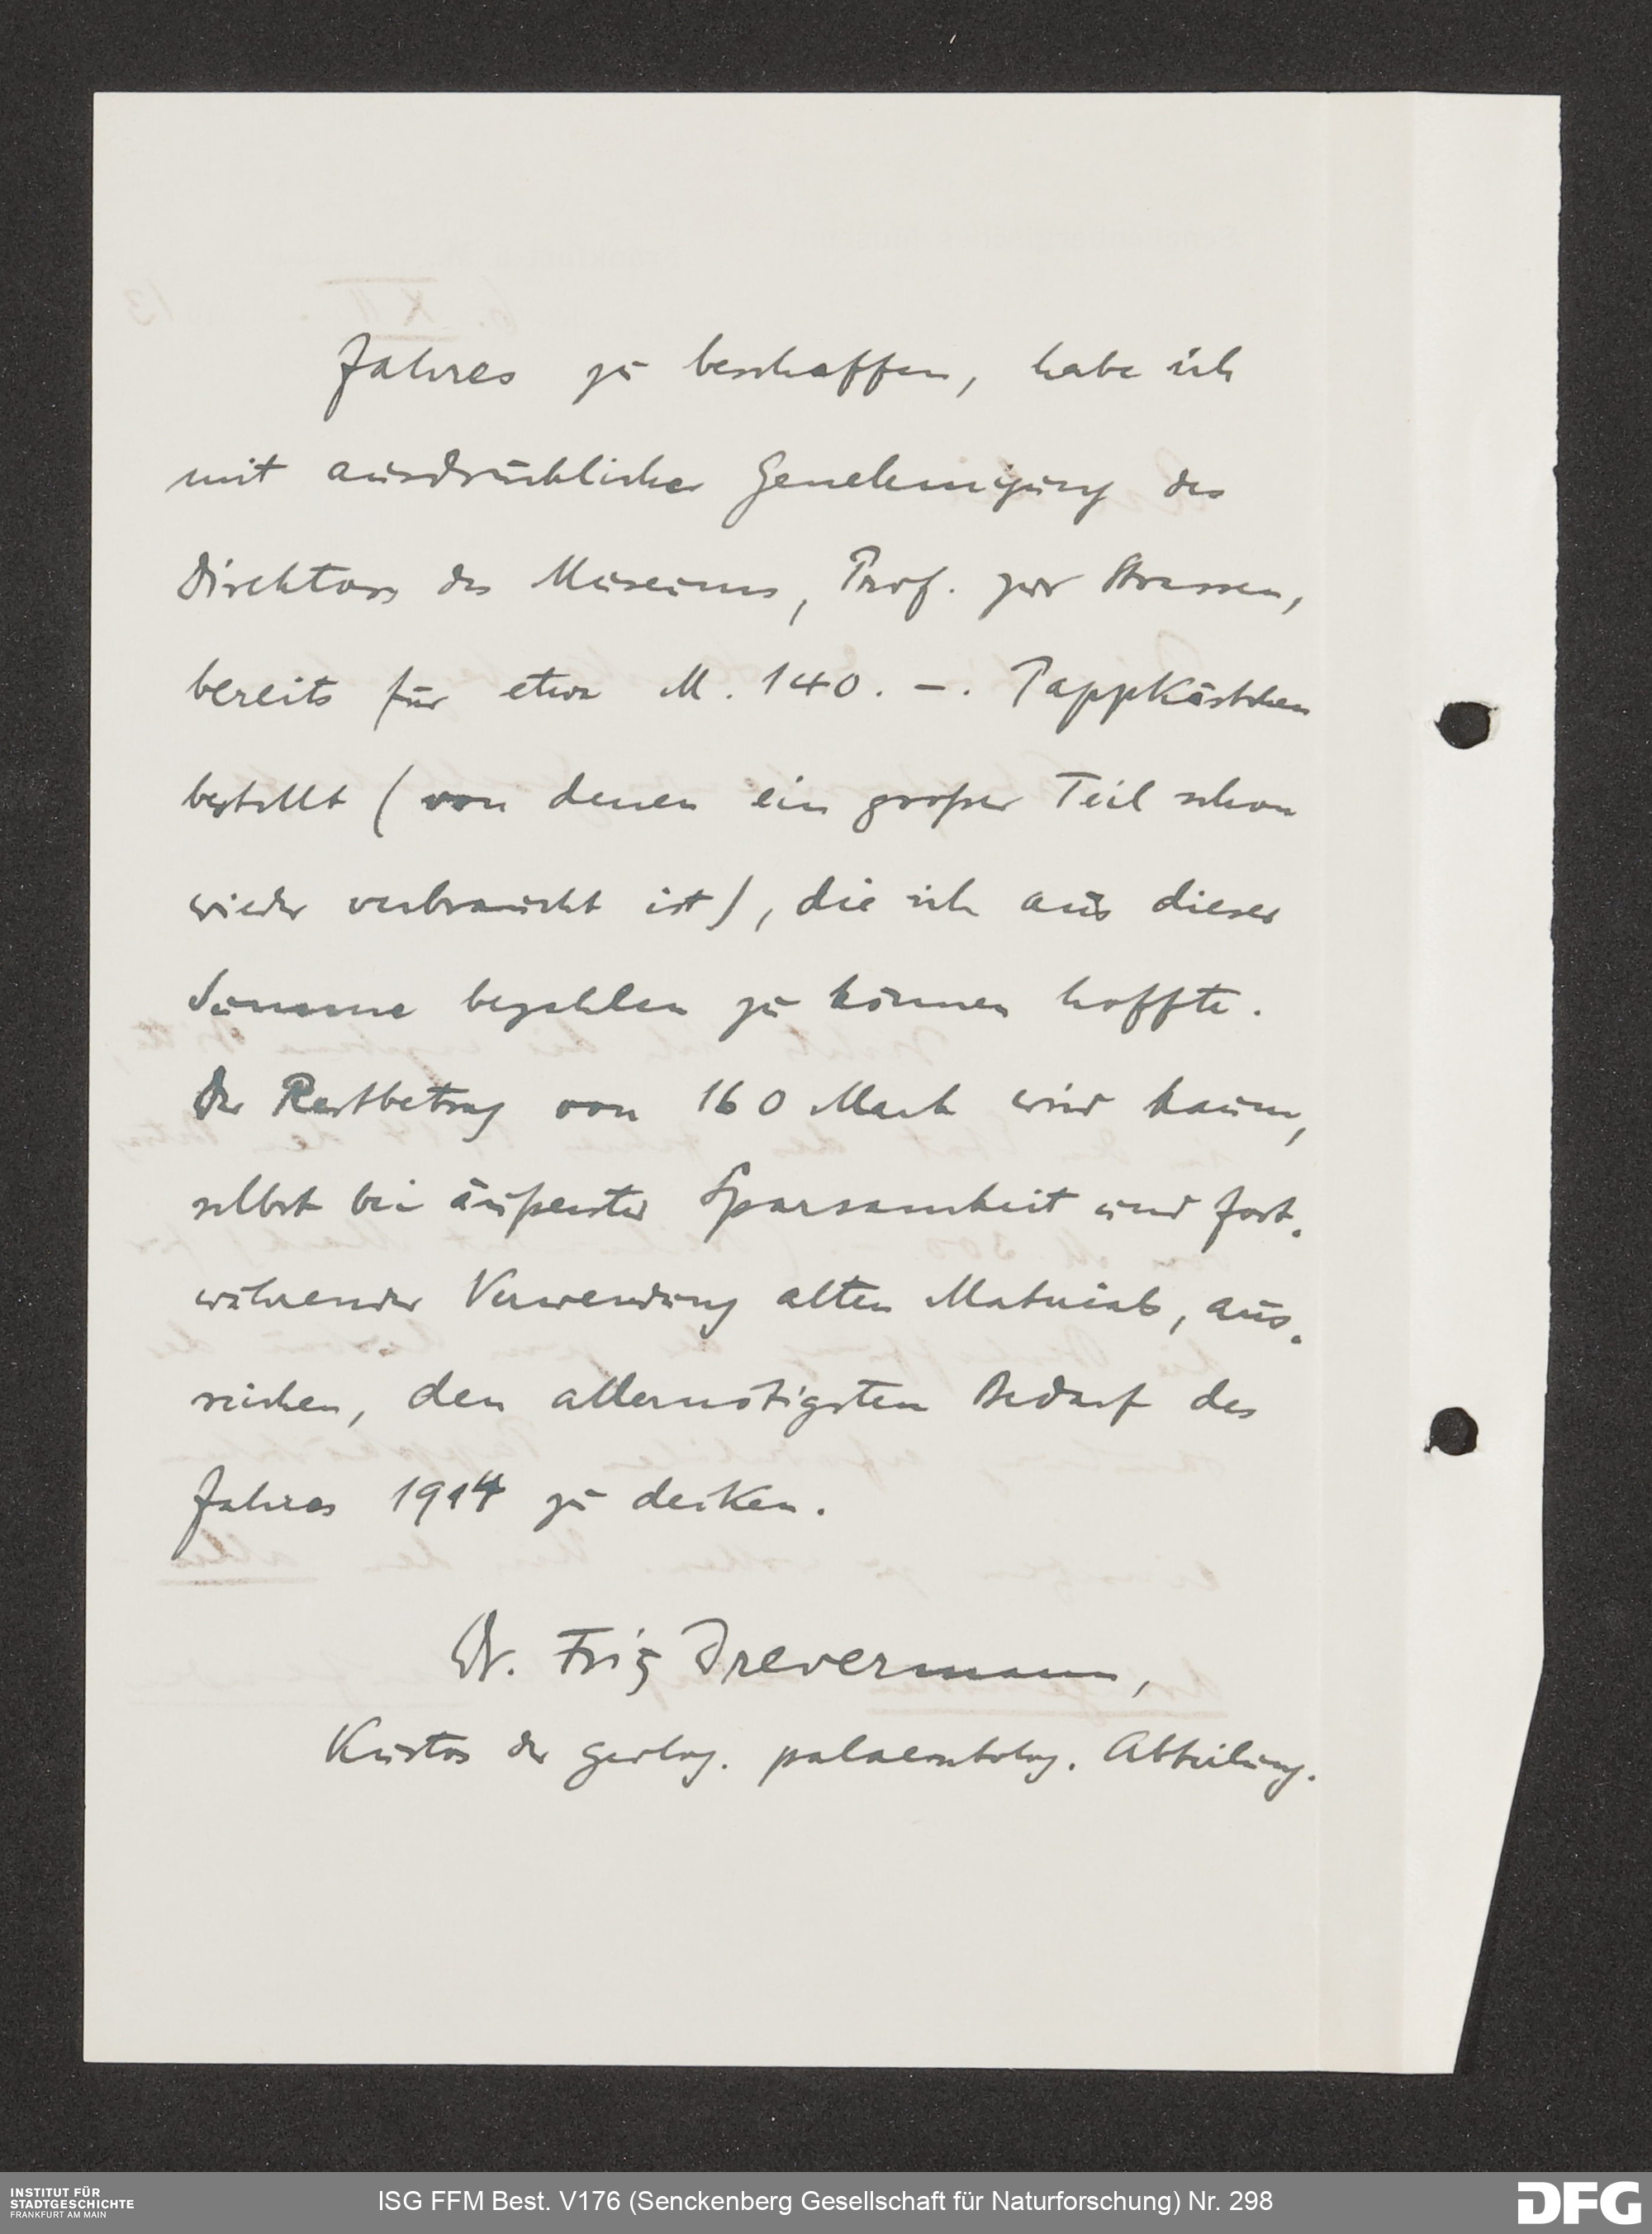 Jahres zu beschaffen, habe ich
mit ausdrücklicher Genehmigung des
Direktors des Museums, Prof. zur Strassen,
bereits für etwa M. 140. –. Pappkästchen
bestellt (von denen ein großer Teil schon
wieder verbraucht ist), die ich aus dieser
Summe bezahlen zu können hoffte.
Der Restbetrag von 160 Mark wird kaum,
selbst bei äußerster Sparsamkeit und fort-
währender Verwendung alten Materials, aus-
reichen, den allernötigsten Bedarf des
Jahres 1914 zu decken.
Dr. Fritz Drevermann,
Kustos der geolog. palaeontolog. Abteilung.
INSTITUT FÜR
STADTGESCHICHTE
FRANKFURT AM MAIN
ISG FFM Best. V176 (Senckenberg Gesellschaft für Naturforschung) Nr. 298
DFG